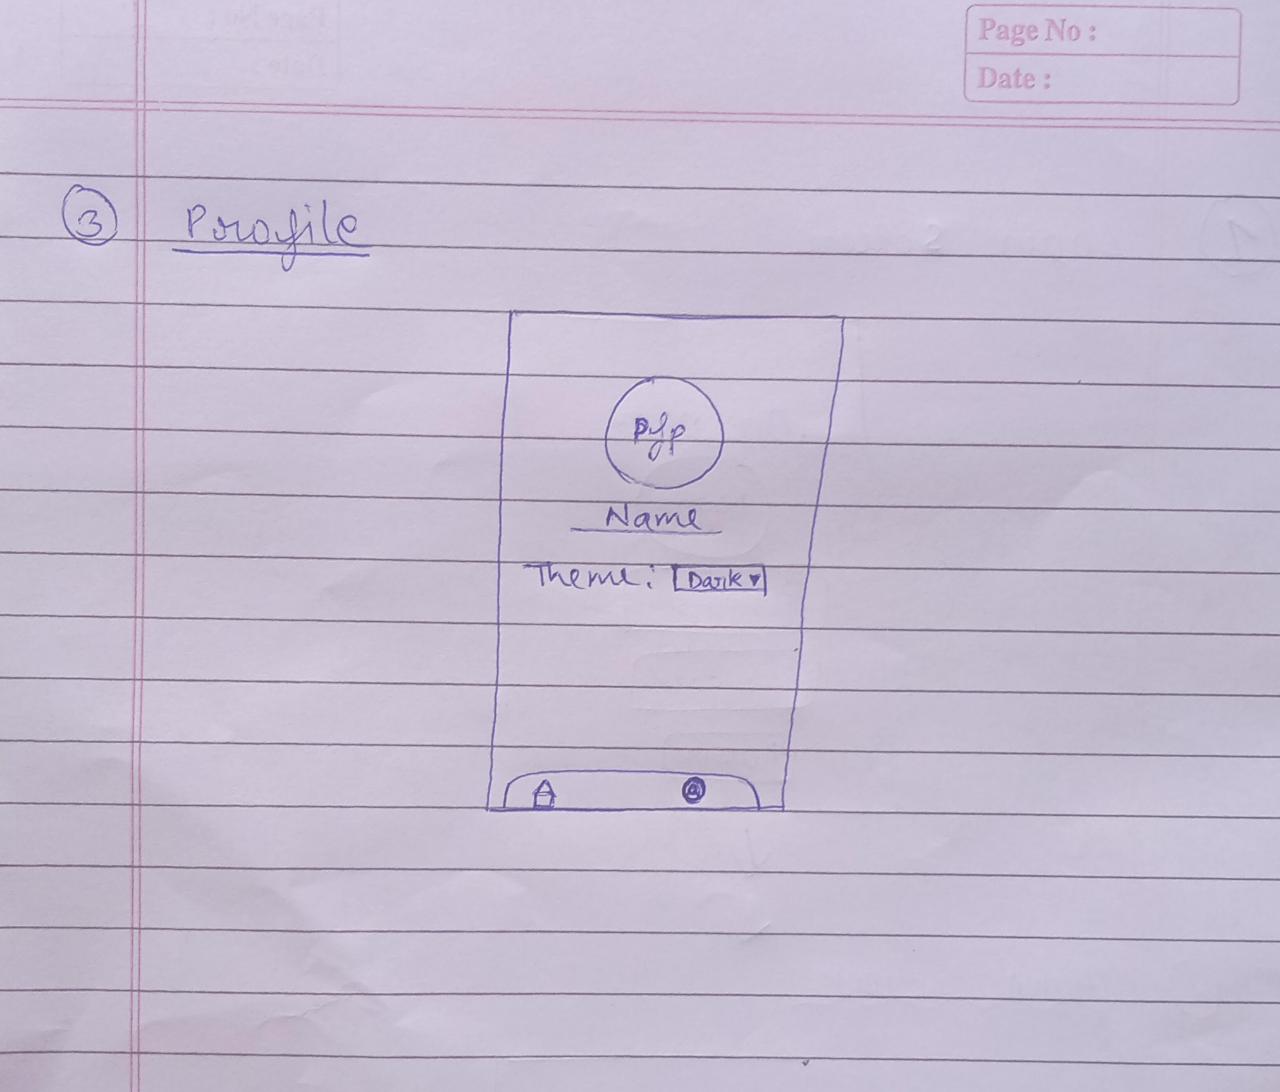 Page No :
Date :
3 Profile
pfp
Name
Theme: Dark